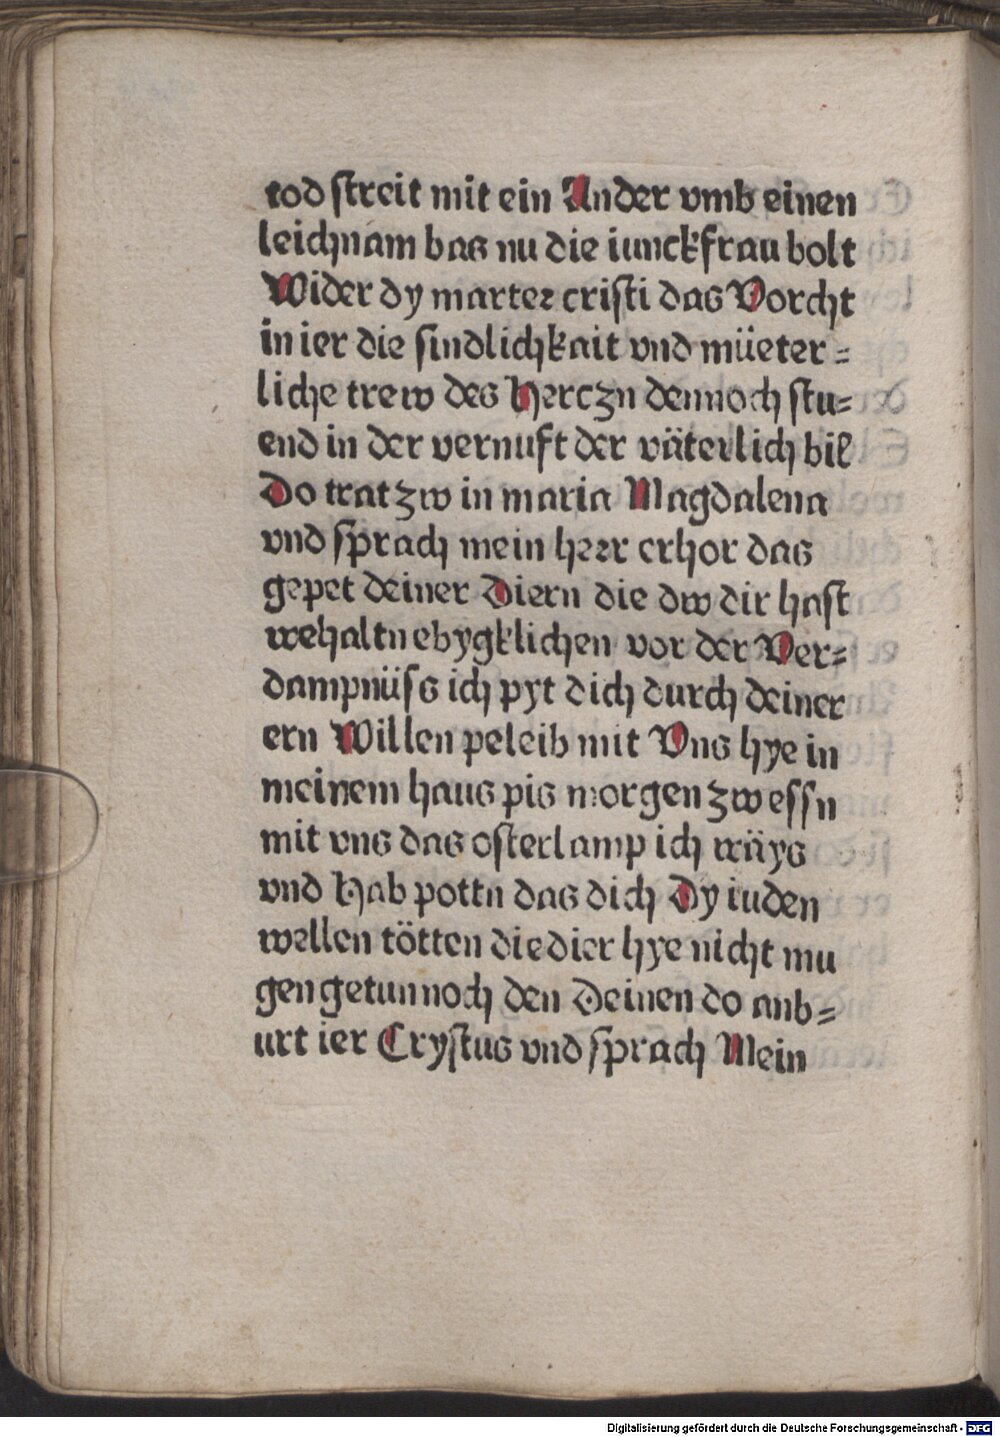 tod streit mit ein Ander vmb einen
leichnam bas nu die iunckfrau bolt
Wider dy marter cristi das Vorcht
in ier die sindlichkait vnd müeter=
liche trew des Herczn dennoch stu=
end in der vernuft der väterlich bil
Do trat zw in maria Magdalena
vnd sprach mein herr erhor das
gepet deiner Diern die dw dir hast
wehaltn ebygklichen vor der Ver=
dampnüss ich pyt dich durch deiner
ern Willen peleib mit Vns hye in
meinem haus pis morgen zw essn
mit vns das osterlamp ich wäys
vnd Hab pottn das dich Dy iuden
wellen tötten die dier hye nicht mu
gen getun noch den Deinen do anb=
urt ier Crystus vnd sprach Mein
Digitalisierung gefördert durch die Deutsche Forschungsgemeinschaft - DFG